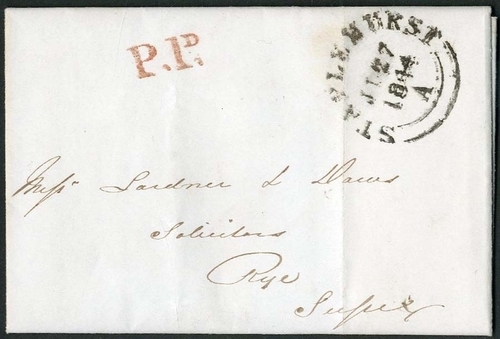 P.P.
STAPLEHURST
JY 27
1844
A
Messrs Lardner & Daws
Solicitors
Rye
Sussex